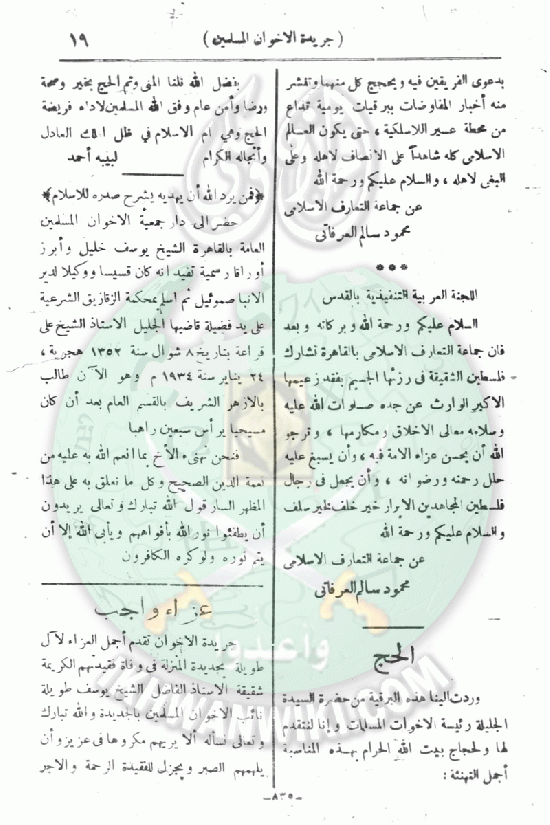 ( جريدة الاخوان المسلمين )
١٩
بدعوى الفريقين فيه ويحجج كل منهما وتنشر
منه أخبار المفاوضات ببرقيات يومية تذاع
من محطة عسير اللاسلكية ، حتى يكون العالم
الاسلامى كله شاهداً على الانصاف لاهله وعلى
البغى لاهله ، والسلام عليكم ورحمة الله
عن جماعة التعارف الاسلامى
محمود سالم العرفاتى
***
اللجنة العربية التنفيذية بالقدس
السلام عليكم ورحمة الله وبركاته وبعد
فان جماعة التعارف الاسلامى بالقاهرة تشارك
فلسطين الشقيقة فى رزئها الجسيم بفقد زعيمها
الاكبر الوارث عن جده صلوات الله عليه
وسلامه معالى الاخلاق ومكارمها ، وترجو
الله أن يحسن عزاء الامة فيه ، وأن يسبغ عليه
حلل رحمته ورضوانه ، وأن يجعل فى رجال
فلسطين المجاهدين الابرار خير خلف لخير سلف
والسلام عليكم ورحمة الله
عن جماعة التعارف الاسلامى
محمود سالم العرفاتى
الحج
وردت الينا هذه البرقية من حضرة السيدة
الجليلة رئيسة الاخوات المسلمات وإنا لنتقدم
لها ولحجاج بيت الله الحرام بهذه المناسبة
أجمل التهنئة :
بفضل الله نلنا المنى وتم الحج بخير وصحة
ورضا وأمن عام وفق الله المسلمين لاداء فريضة
الحج وهى ام الاسلام في ظل الملك العادل
وأنجاله الكرام لبيبه أحمد
﴿فمن يرد الله أن يهديه يشرح صدره للاسلام﴾
حضر الى دار جمعية الاخوان المسلمين
العامة بالقاهرة الشيخ يوسف خليل وأبرز
أوراقا رسمية تفيد انه كان قسيسا ووكيلا لدير
الانبا صموئيل ثم اسلم بمحكمة الزقازيق الشرعية
على يد فضيلة قاضيها الجليل الاستاذ الشيخ على
قراعة بتاريخ ٨ شوال سنة ١٣٥٢ هجرية ،
٢٤ يناير سنة ١٩٣٤ م وهو الآن طالب
بالازهر الشريف بالقسم العام بعد أن كان
مسيحيا يرأس سبعين راهبا
فنحن نهنىء الأخ بما انعم الله به عليه من
نعمة الدين الصحيح وكل ما نعلق به على هذا
المظهر السار قول الله تبارك وتعالى يريدون
أن يطفئوا نور الله بأفواههم ويأبى الله إلا أن
يتم نوره ولو كره الكافرون
عزاء واجب
جريدة الاخوان تقدم أجمل العزاء لآل
طويلة بجديدة المنزلة فى وفاة فقيدتهم الكريمة
شقيقة الاستاذ الفاضل الشيخ يوسف طويلة
نائب الاخوان المسلمين بالجديدة والله تبارك
وتعالى نسأله ألا يريهم مكروها فى عزيز وأن
يلهمهم الصبر ويجزل للفقيدة الرحمة والاجر
—٨٣٥—
وأعدوا
IKHWANWIKI.COM